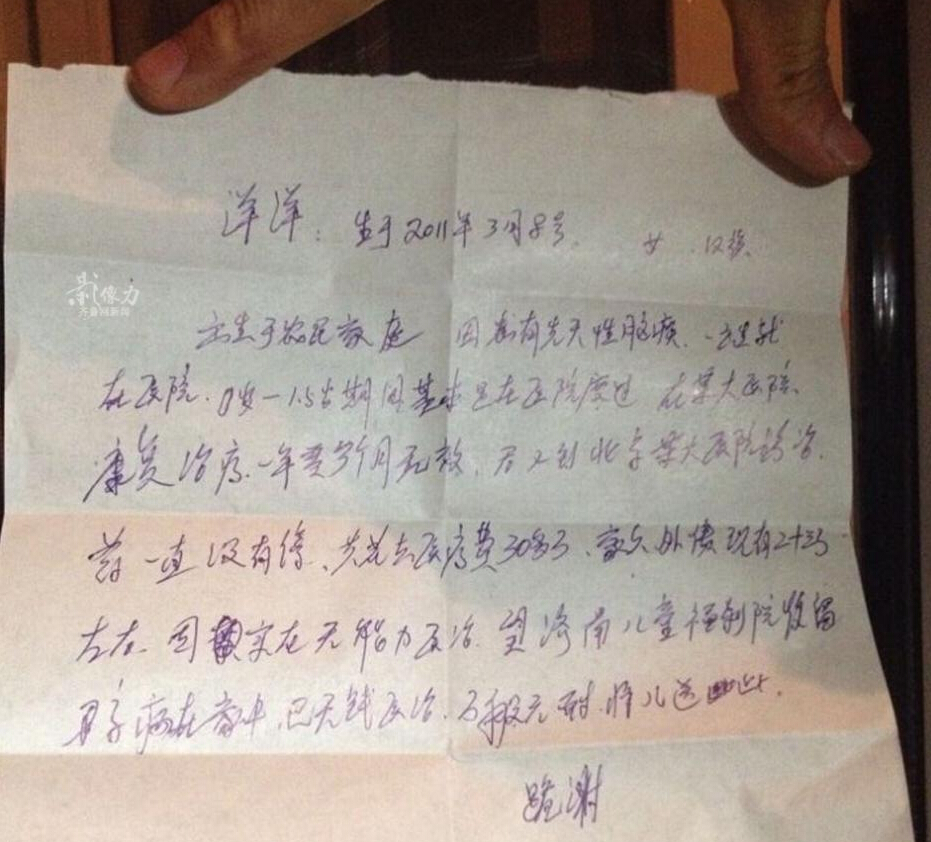 洋洋：生于2011年3月8号、 女、汉族、
影像力
齐鲁网新闻
出生于农民家庭 因患有先天性脑瘫、一出生就
在医院、0岁-1.5岁期间基本是在医院度过 在某大医院、
康复治疗、一年零3个月无效、后又到北京某大医院诊治、
药一直没有停、共花去医疗费30多万、家欠外债现有2十3万
左右、因实在无能力医治、望济南儿童福利院收留
病在家中、已无钱医治、万般无耐、将儿送此、
跪谢